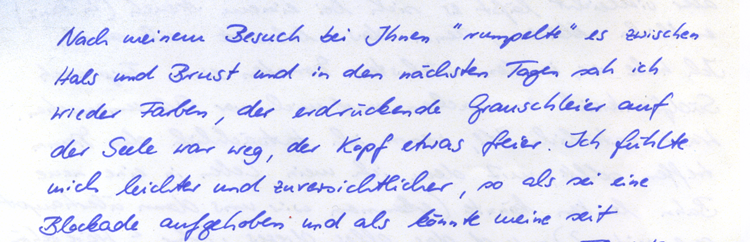 Nach meinem Besuch bei Ihnen "rumpelte" es zwischen
Hals und Brust und in den nächsten Tagen sah ich
wieder Farben, der erdrückende Grauschleier auf
der Seele war weg, der Kopf etwas freier. Ich fühlte
mich leichter und zuversichtlicher, so als sei eine
Blockade aufgehoben und als könnte meine seit